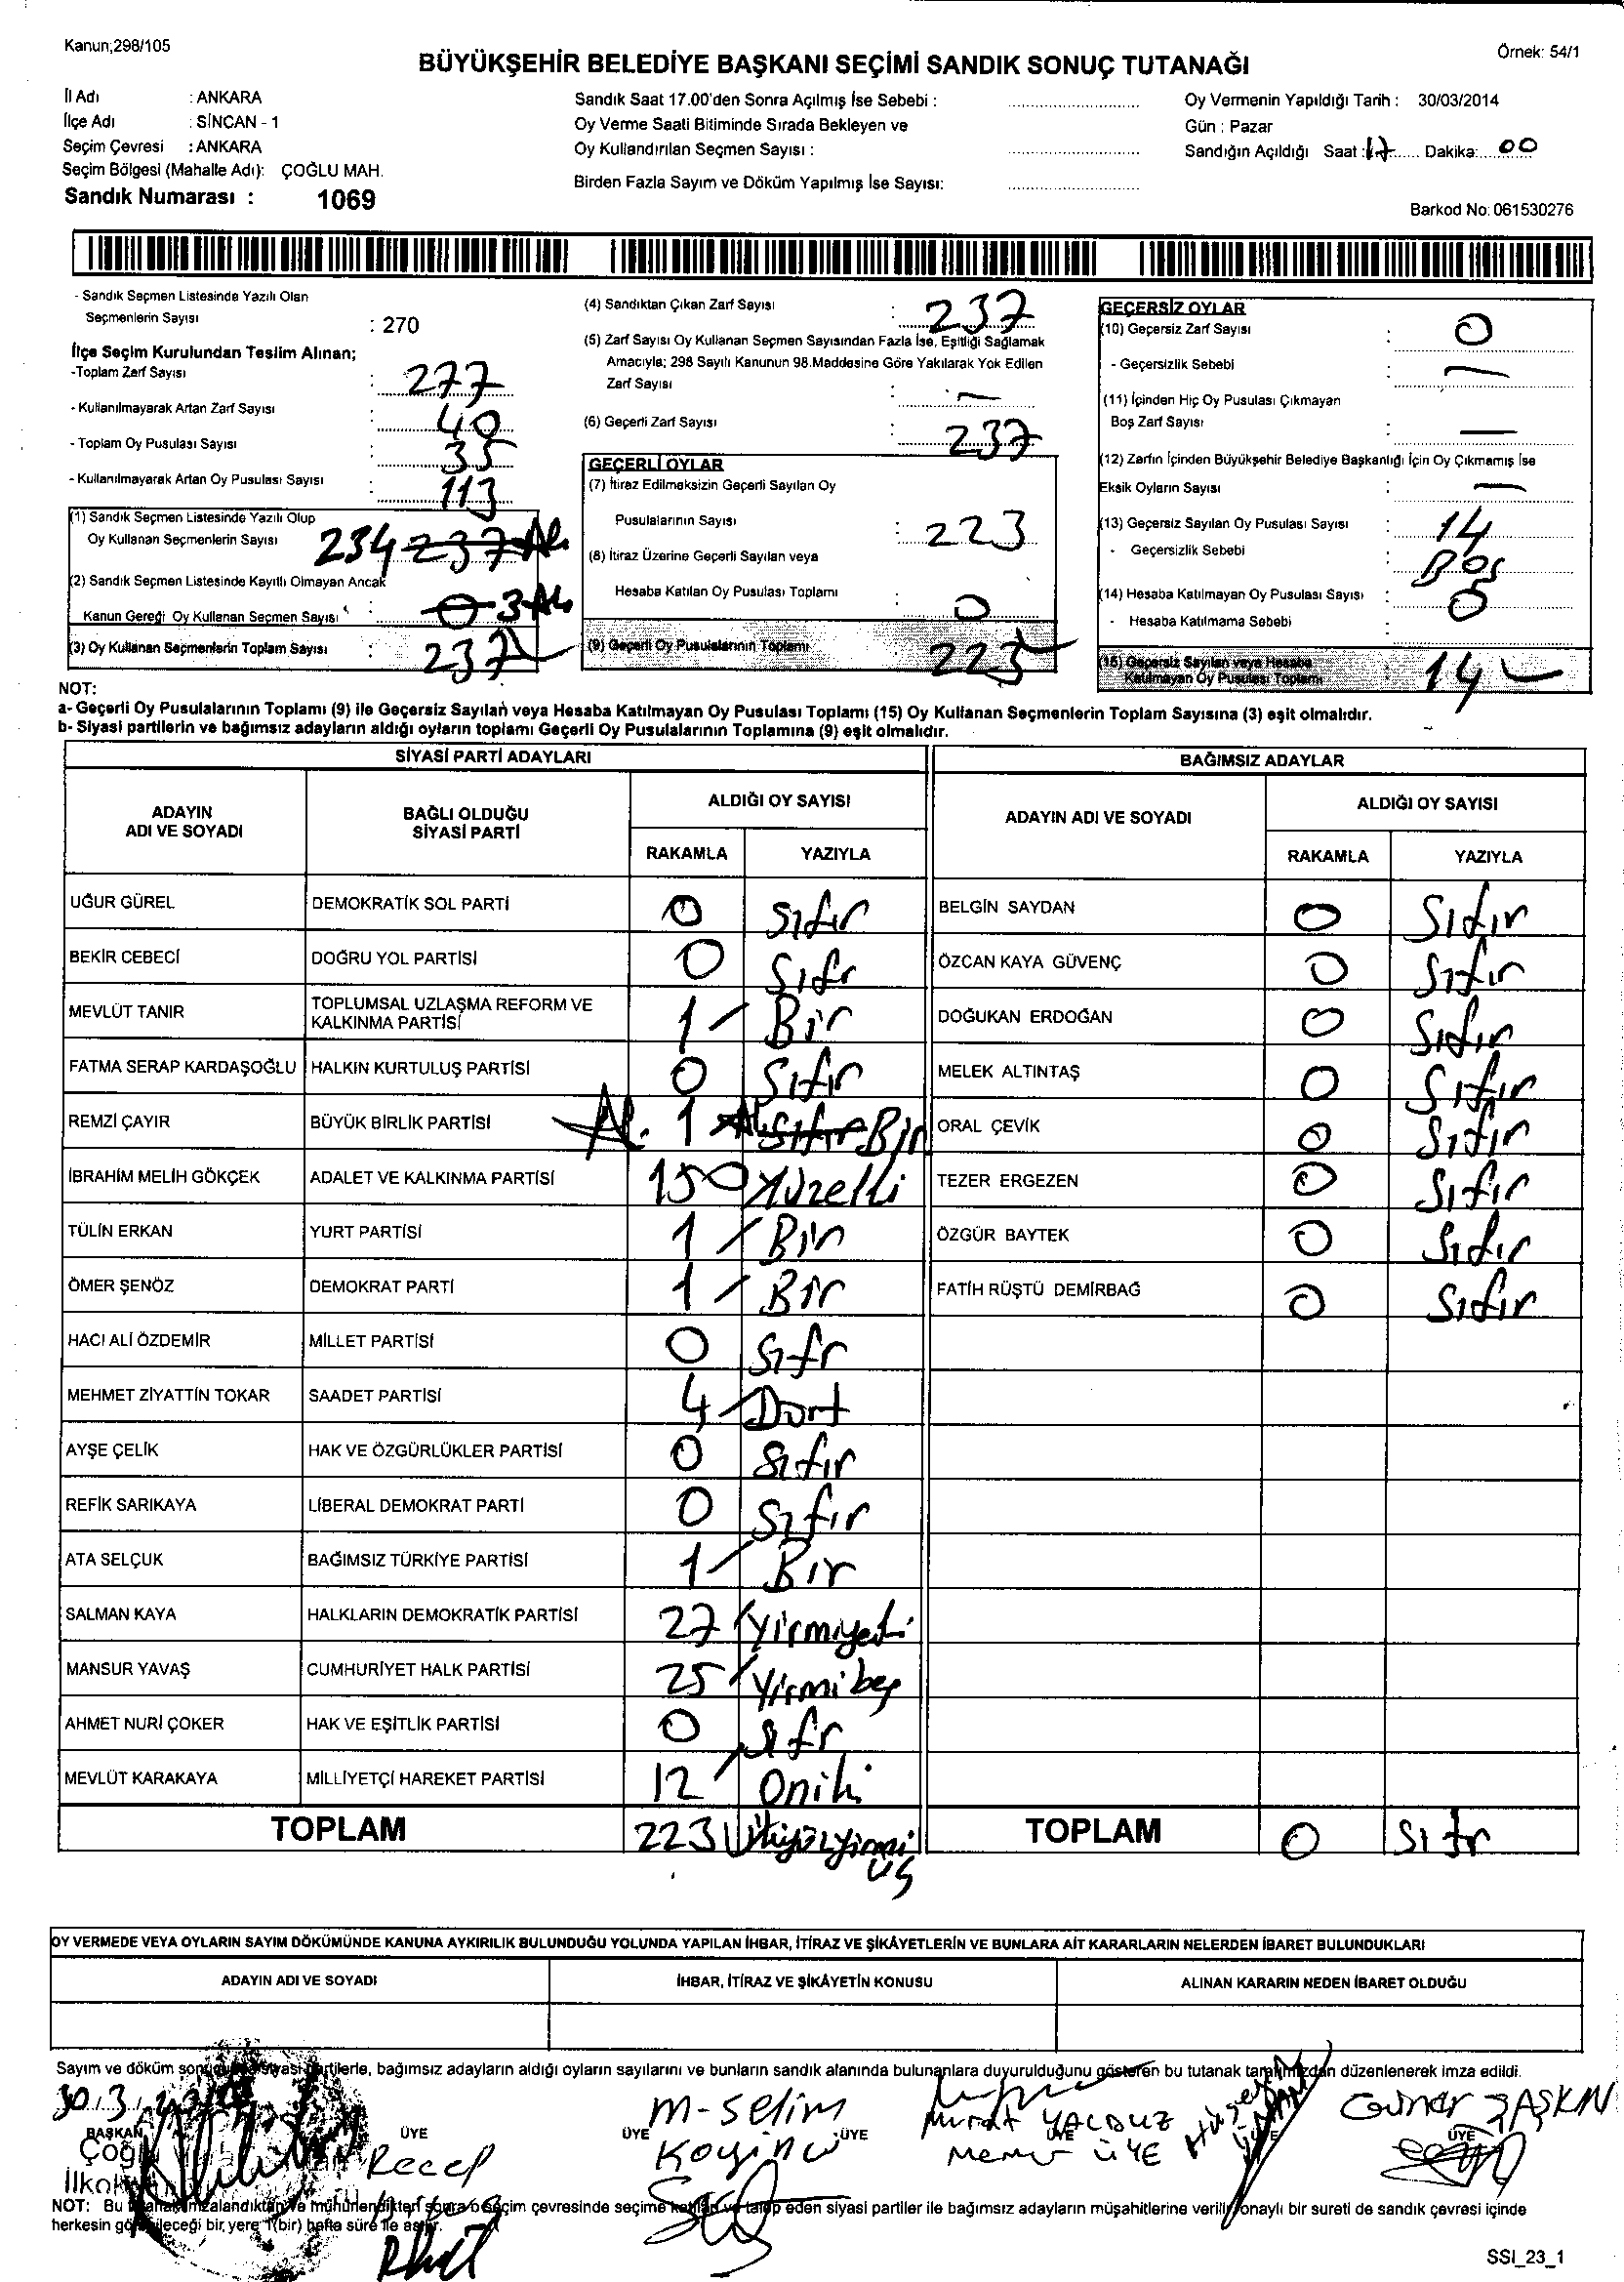 Kanun;298/105
Örnek: 54/1
BÜYÜKŞEHİR BELEDİYE BAŞKANI SEÇİMİ SANDIK SONUÇ TUTANAĞI
İl Adı : ANKARA
İlçe Adı : SİNCAN - 1
Seçim Çevresi : ANKARA
Seçim Bölgesi (Mahalle Adı): ÇOĞLU MAH.
Sandık Numarası : 1069
Sandık Saat 17.00'den Sonra Açılmış İse Sebebi :
Oy Verme Saati Bitiminde Sırada Bekleyen ve
Oy Kullandırılan Seçmen Sayısı :
Birden Fazla Sayım ve Döküm Yapılmış İse Sayısı:
Oy Vermenin Yapıldığı Tarih : 30/03/2014
Gün : Pazar
Sandığın Açıldığı Saat : 17 Dakika: 00
Barkod No: 061530276
- Sandık Seçmen Listesinde Yazılı Olan
Seçmenlerin Sayısı : 270
İlçe Seçim Kurulundan Teslim Alınan;
-Toplam Zarf Sayısı : 277
- Kullanılmayarak Artan Zarf Sayısı : 40
- Toplam Oy Pusulası Sayısı : 35
- Kullanılmayarak Artan Oy Pusulası Sayısı : 113
(1) Sandık Seçmen Listesinde Yazılı Olup
Oy Kullanan Seçmenlerin Sayısı 234 237
(2) Sandık Seçmen Listesinde Kayıtlı Olmayan Ancak
Kanun Gereği Oy Kullanan Seçmen Sayısı : 0 3
(3) Oy Kullanan Seçmenlerin Toplam Sayısı : 237
(4) Sandıktan Çıkan Zarf Sayısı : 237
(5) Zarf Sayısı Oy Kullanan Seçmen Sayısından Fazla İse, Eşitliği Sağlamak
Amacıyla; 298 Sayılı Kanunun 98.Maddesine Göre Yakılarak Yok Edilen
Zarf Sayısı : —
(6) Geçerli Zarf Sayısı : 237
GEÇERLİ OYLAR
(7) İtiraz Edilmeksizin Geçerli Sayılan Oy
Pusulalarının Sayısı : 223
(8) İtiraz Üzerine Geçerli Sayılan veya
Hesaba Katılan Oy Pusulası Toplamı : 0
(9) Geçerli Oy Pusulalarının Toplamı 223
GEÇERSİZ OYLAR
(10) Geçersiz Zarf Sayısı : 0
- Geçersizlik Sebebi : —
(11) İçinden Hiç Oy Pusulası Çıkmayan
Boş Zarf Sayısı : —
(12) Zarfın İçinden Büyükşehir Belediye Başkanlığı İçin Oy Çıkmamış İse
Eksik Oyların Sayısı : —
(13) Geçersiz Sayılan Oy Pusulası Sayısı : 14
- Geçersizlik Sebebi : Boş
(14) Hesaba Katılmayan Oy Pusulası Sayısı : 0
- Hesaba Katılmama Sebebi :
(15) Geçersiz Sayılan veya Hesaba
Katılmayan Oy Pusulası Toplamı : 14
NOT:
a- Geçerli Oy Pusulalarının Toplamı (9) ile Geçersiz Sayılan veya Hesaba Katılmayan Oy Pusulası Toplamı (15) Oy Kullanan Seçmenlerin Toplam Sayısına (3) eşit olmalıdır.
b- Siyasi partilerin ve bağımsız adayların aldığı oyların toplamı Geçerli Oy Pusulalarının Toplamına (9) eşit olmalıdır.
SİYASİ PARTİ ADAYLARI
ADAYIN ADI VE SOYADI BAĞLI OLDUĞU SİYASİ PARTİ ALDIĞI OY SAYISI
RAKAMLA YAZIYLA
UĞUR GÜREL DEMOKRATİK SOL PARTİ 0 Sıfır
BEKİR CEBECİ DOĞRU YOL PARTİSİ 0 Sıfr
MEVLÜT TANIR TOPLUMSAL UZLAŞMA REFORM VE KALKINMA PARTİSİ 1 Bir
FATMA SERAP KARDAŞOĞLU HALKIN KURTULUŞ PARTİSİ 0 Sıfır
REMZİ ÇAYIR BÜYÜK BİRLİK PARTİSİ 1 Sıfır Bir
İBRAHİM MELİH GÖKÇEK ADALET VE KALKINMA PARTİSİ 150 Yüzelli
TÜLİN ERKAN YURT PARTİSİ 1 Bir
ÖMER ŞENÖZ DEMOKRAT PARTİ 1 Bir
HACI ALİ ÖZDEMİR MİLLET PARTİSİ 0 Sıfr
MEHMET ZİYATTİN TOKAR SAADET PARTİSİ 4 Dört
AYŞE ÇELİK HAK VE ÖZGÜRLÜKLER PARTİSİ 0 Sıfır
REFİK SARIKAYA LİBERAL DEMOKRAT PARTİ 0 Sıfır
ATA SELÇUK BAĞIMSIZ TÜRKİYE PARTİSİ 1 Bir
SALMAN KAYA HALKLARIN DEMOKRATİK PARTİSİ 27 Yirmiyedi
MANSUR YAVAŞ CUMHURİYET HALK PARTİSİ 25 Yirmibeş
AHMET NURİ ÇOKER HAK VE EŞİTLİK PARTİSİ 0 Sıfr
MEVLÜT KARAKAYA MİLLİYETÇİ HAREKET PARTİSİ 12 Oniki
TOPLAM 223 İkiyüzyirmi üç
BAĞIMSIZ ADAYLAR
ADAYIN ADI VE SOYADI ALDIĞI OY SAYISI
RAKAMLA YAZIYLA
BELGİN SAYDAN 0 Sıfır
ÖZCAN KAYA GÜVENÇ 0 Sıfır
DOĞUKAN ERDOĞAN 0 Sıfır
MELEK ALTINTAŞ 0 Sıfır
ORAL ÇEVİK 0 Sıfır
TEZER ERGEZEN 0 Sıfır
ÖZGÜR BAYTEK 0 Sıfır
FATİH RÜŞTÜ DEMİRBAĞ 0 Sıfır
TOPLAM 0 Sıfr
OY VERMEDE VEYA OYLARIN SAYIM DÖKÜMÜNDE KANUNA AYKIRILIK BULUNDUĞU YOLUNDA YAPILAN İHBAR, İTİRAZ VE ŞİKÂYETLERİN VE BUNLARA AİT KARARLARIN NELERDEN İBARET BULUNDUKLARI
ADAYIN ADI VE SOYADI İHBAR, İTİRAZ VE ŞİKÂYETİN KONUSU ALINAN KARARIN NEDEN İBARET OLDUĞU
Sayım ve döküm siyasi partilerle, bağımsız adayların aldığı oyların sayılarını ve bunların sandık alanında bulunanlara duyurulduğunu gösteren bu tutanak tarafımızdan düzenlenerek imza edildi.
30.3.
BAŞKAN ÜYE ÜYE ÜYE ÜYE ÜYE
Recep
M-Selim
Koyinci
Murat YALDUZ
Memur ÜYE
Güner ŞAŞKIN
NOT: Bu tutanak imzalandıktan ve mühürlendikten sonra o seçim çevresinde seçime katılan ve talep eden siyasi partiler ile bağımsız adayların müşahitlerine verilir, onaylı bir sureti de sandık çevresi içinde
herkesin görebileceği bir yere 1(bir) hafta süre ile asılır.
SSI_23_1